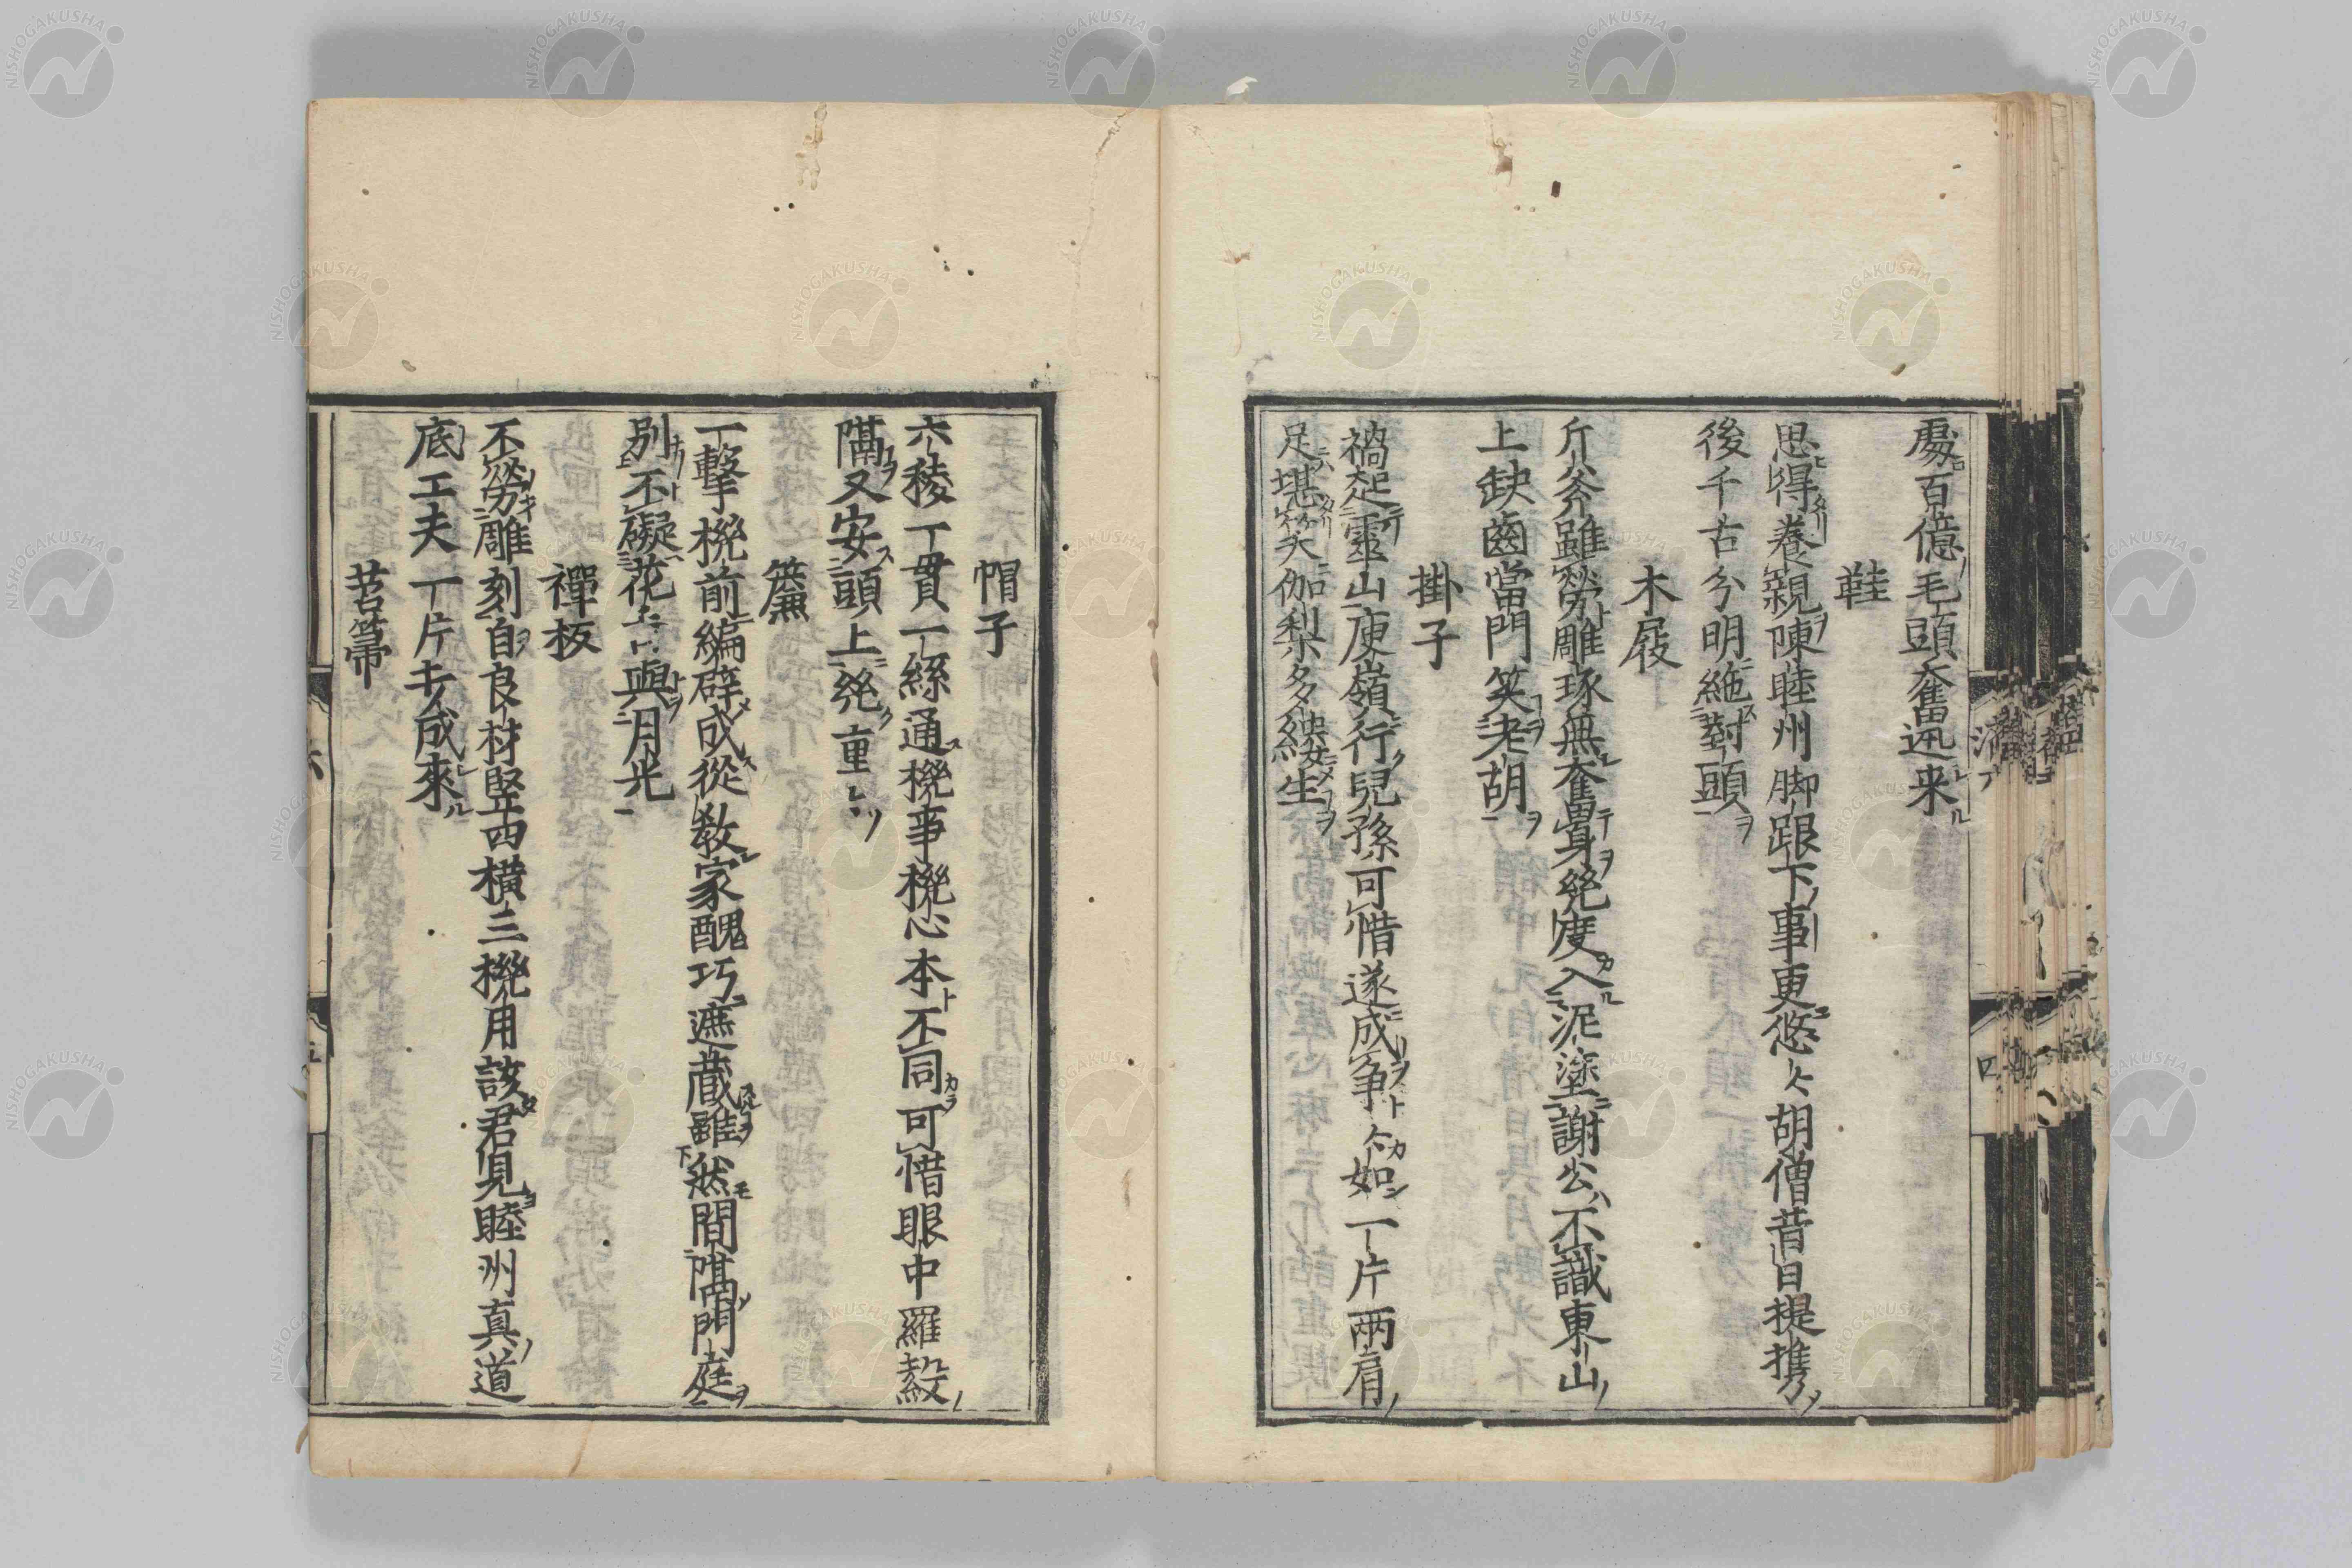 處百億毛頭奮迅来
鞋
思得養親陳睦州脚跟下事更悠々胡僧昔日提携
後千古分明絶對頭
木屐
斤斧雖勞雕琢無奮身纔度入泥塗謝公不識東山
上缺齒當門笑老胡
掛子
禍起靈山庾嶺行兒孫可惜遂成争々如一片兩肩
足堪笑伽梨多線生
帽子
六稜一貫一絲通機事機心本不同可惜眼中羅縠
隔又安頭上纔重々
簾
一擊機前編辟成從教家醜巧遮藏雖然間隔門庭
別不礙花香與月光
禪板
不勞雕刻自良材竪四横三機用該君見睦州真道
底工夫一片去成來
苕箒
NISHOGAKUSHA